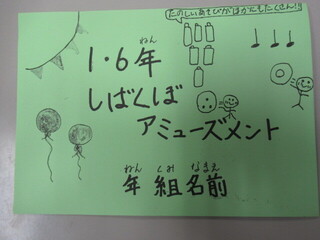 たのしいあそびがほかにもたくさん!!
1・6年
ねん
しばくぼ
アミューズメント
ねん くみ なまえ
年 組 名前